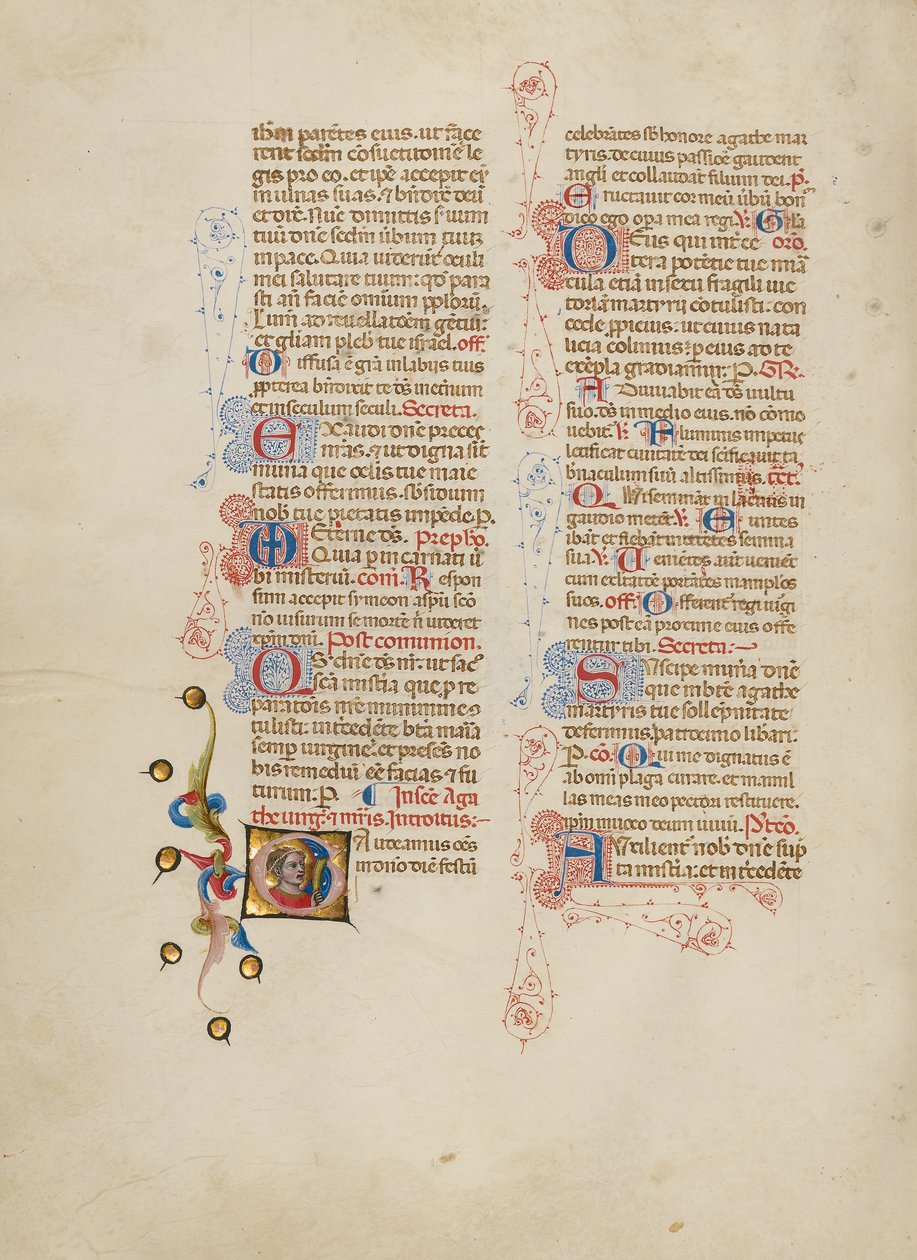 ih̅m parētes eius. ut face
rent scdm̄ cōsuetudinē le
gis pro eo. et ip̄e accepit eū
in ulnas suas. & bn̄dix̄ deū
et dix̄. Nūc dimittis s̄uum
tuū dn̄e scdm̄ ūbum tuū
in pace. Quia uiderūt oculi
mei salutare tuum: qd̄ para
sti an̄ faciē omiūm pp̄lorū.
Lum̄ ad reuellatōem gētiū:
et gl̄iam pleb̄ tue israel. off.
Diffusa ē grā in labiis tuis
ꝓpterea bn̄dixit te ds̄ in et̄num
et in seculum seculi. Secreta.
Exaudi dn̄e preces
n̄ras. & ut digna sīt
mun̄a que oc̄lis tue maie
statis offerimus. sb̄sidium
nob̄ tue pietatis impēde. P.
VD Eterne ds̄. Prep̄ho.
Quia p̄ incarnati ū
bi misterui. com̄. Respon
sum accepit symeon a sp̄u scō
nō uisurum se mortē n̄ uideret
xp̄m dn̄i. Post communion.
Qs̄ dn̄e ds̄ nr̄: ut sac̄
scā mist̄ia que ꝓ re
parat̄ōis n̄re munimine
tulisti: int̄cedēte bt̄a mar̄ia
semp̄ uirgine. et presēs no
bis remediū eē facias & fu
turum: P. In scē Aga
the uirg. & mr̄is. Introitus:-
Gaudeamus oēs
in dn̄o diē festū
celebrātes sb̄ honore agathe mar
tyris. de cuius passiōe gaudent
angl̄i et collaudāt filium dei. p̄.
Eructauit cor meū ūbū bon̄
dico ego op̄a mea regi. V. Gl̄a
Deus qui int̄ ce oro.
tera potētie tue mir̄a
cula etiā in sexu fragili uic
toriā martyrii cōtulisti. con
cede ꝓpicius: ut cuius nata
licia colimus: p̄ eius ad te
exēpla gradiamur: P. GR.
Adiuuabit eā ds̄ uultu
suo. ds̄ in medio eius. nō cōmo
uebit̄. V. Fluminis impetus
letificat ciuitatē dei sc̄ificauit ta
bn̄aculum suū altissimus. tct̄.
Qui semināt in lacrimis in
gaudio metēt. V. Euntes
ibāt et flebāt mittētes semina
sua. V. Uenietēs aut̄ ueniēt
cum exltatōe portātes manip̄los
suos. off. Offerent̄ regi uirgi
nes post eā proxime eius offe
rentur tibi. Secreta:-
Suscipe mun̄a dn̄e
que in bt̄e agathe
martyris tue sollēpnitate
deferimus. patrocinio lib̄ari:
P. cō. Qui me dignatus ē
ab omi plaga curare. et mamil
las meas meo pectori restituere.
ip̄m inuoco deum uiuū. P̄tcō.
Auxilient̄ nob̄ dn̄e sup̄
ta mist̄ia: et int̄cedēte